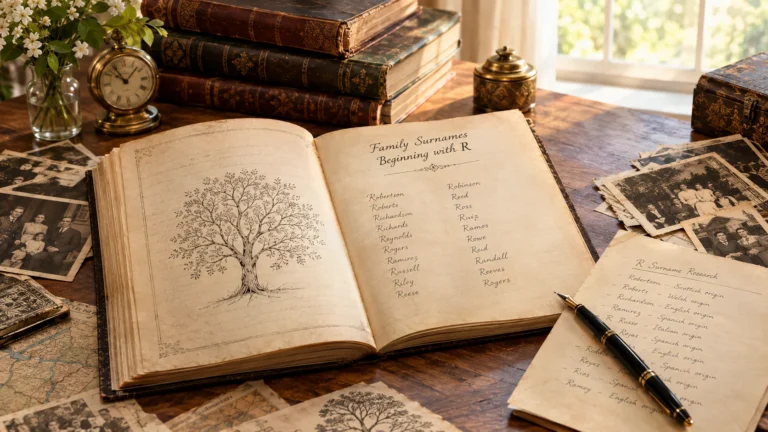 Family Surnames
Beginning with R
Robertson
Roberts
Richardson
Richards
Reynolds
Rogers
Ramirez
Russell
Riley
Reese
Robinson
Reed
Rose
Ruiz
Ramos
Rowe
Reid
Randall
Reeves
Rogers
R Surname Research
Robertson - Scottish origin
Roberts - Welsh origin
Richardson - English origin
Ramirez - Spanish origin
R. Russo - Italian origin
Rojas - Spanish origin
English origin
Reyes - Spanish origin
Rios - Spanish origin
Ramey - English origin